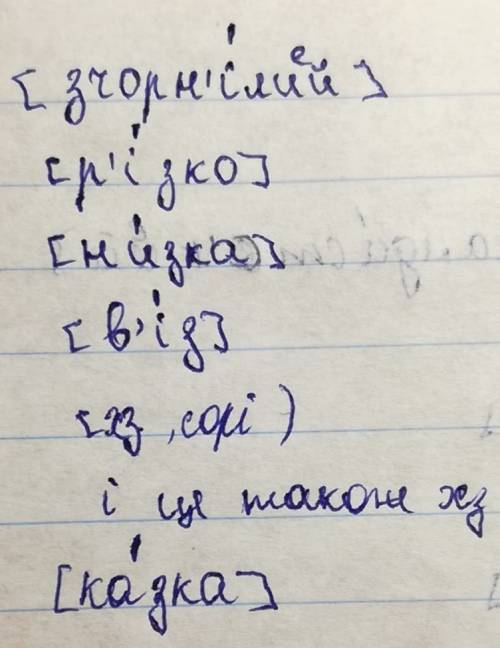 [зчорн'і́лиᵉй]
[р'і́зко]
[ни́зка]
[в'і́д]
[хз, сорі)
і це також хз
[ка́зка]